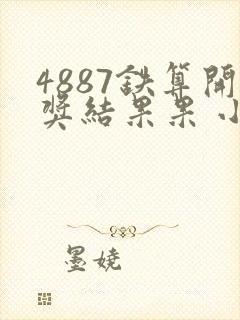 4887鉄算開
奖結果果小
墨娆